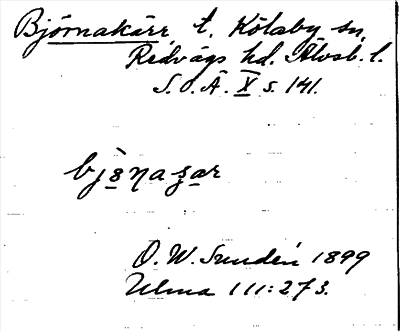 Björnakärr t. Kölaby sn,
Redvägs hd. Älvsb. l.
S. O. Ä. X s. 141.
O. W. Sundén 1899
Ulma 111:273.